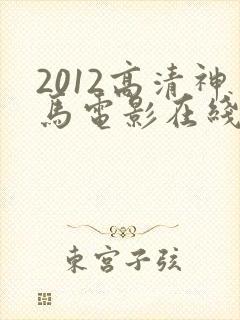 2012高清神
马电影在线
東宫子弦